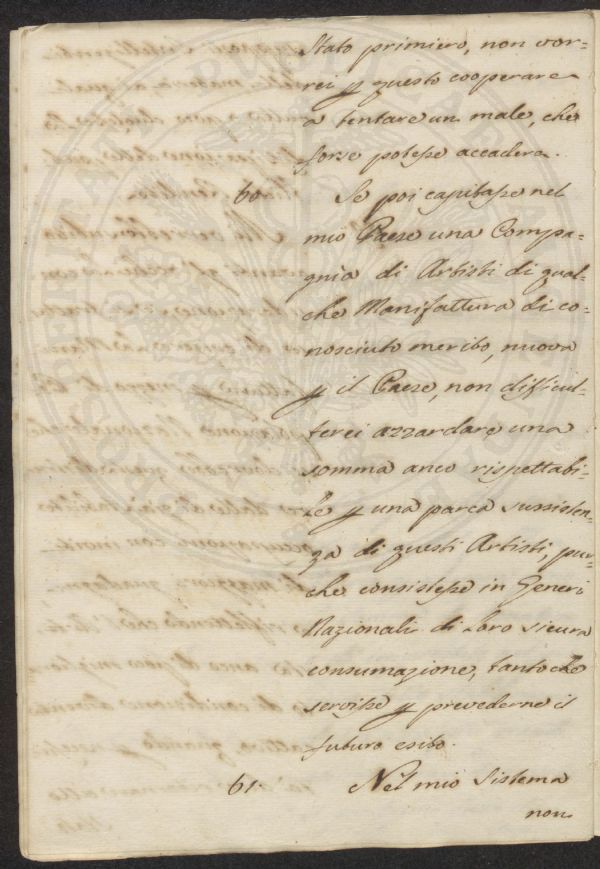 Stato primiero, non vor-
rei p questo cooperare
a tentare un male, che
forse potesse accadere.
60. Se poi capitasse nel
mio Paese una Compa-
gnia di Artisti di qual-
che Manifattura di co-
nosciuto merito, nuova
p il Paese, non difficul-
terei azzardare una
somma anco rispettabi-
le p una parca sussisten-
za di questi Artisti, pur-
che consistesse in Generi
Nazionali di loro sicura
consumazione, tanto che
servisse p prevederne il
futuro esito.
61. Nel mio Sistema
non